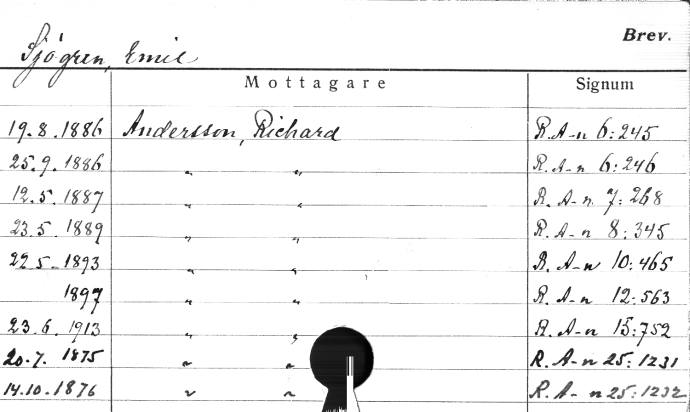 Brev.
Sjögren, Emil
Mottagare Signum
19.8.1886 Andersson, Richard R. A-n 6:245
25.9.1886 " " R. A-n 6:246
12.5.1887 " " R. A-n 7:268
23.5.1889 " " R. A-n 8:345
22.5.1893 " " R. A-n 10:465
1897 " " R. A-n 12:563
23.6.1913 " " R. A-n 15:752
20.7.1875 " " R. A-n 25:1231
14.10.1876 " " R. A-n 25:1232